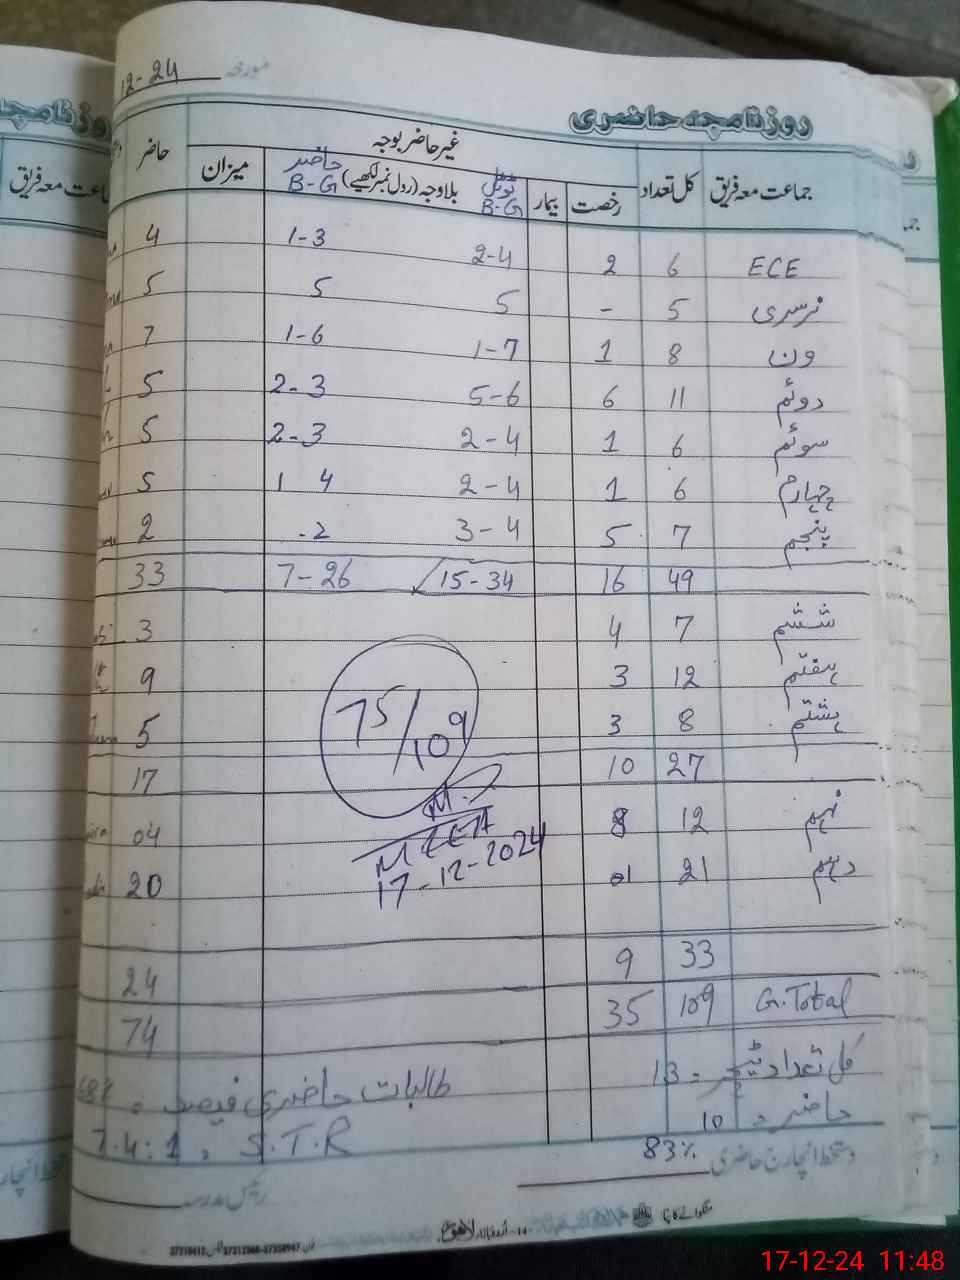 مورخہ 12-24
روزنامچہ حاضری
جماعت معہ فریق کل تعداد غیر حاضر بوجہ حاضر
رخصت بیمار ٹوٹل B-G بلاوجہ (رول نمبر لکھیے) حاضر B-G میزان
ECE 6 2 2-4 1-3 4
نرسری 5 - 5 5 5
ون 8 1 1-7 1-6 7
دوئم 11 6 5-6 2-3 5
سوئم 6 1 2-4 2-3 5
چہارم 6 1 2-4 1 4 5
پنجم 7 5 3-4 .2 2
49 16 15-34 7-26 33
ششم 7 4 3
ہفتم 12 3 9
ہشتم 8 3 5
27 10 17
75/109
نہم 12 8 04
MEEA
17-12-2024
دہم 21 01 20
33 9 24
G.Total 109 35 74
کل تعداد ٹیچر = 13 طالبات حاضری فیصد = 68%
حاضر = 10 S.T.R = 7.4:1
83%
دستخط انچارج حاضری رئیس مدرسہ
لاہور
17-12-24 11:48